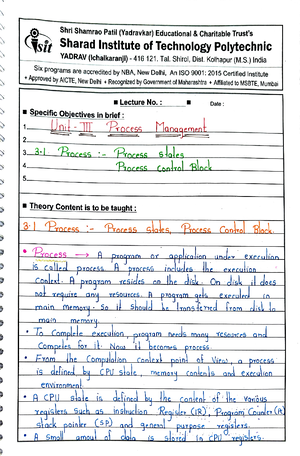 Shri Shamrao Patil (Yadravkar) Educational & Charitable Trust's
Sharad Institute of Technology Polytechnic
YADRAV (Ichalkaranji) - 416 121, Tal. Shirol, Dist. Kolhapur (M.S.) India
Six programs are accredited by NBA, New Delhi, An ISO 9001: 2015 Certified Institute
• Approved by AICTE, New Delhi • Recognized by Government of Maharashtra • Affiliated to MSBTE, Mumbai
■ Lecture No. : ■ Date :
■ Specific Objectives in brief :
1. Unit - III Process Management
2.
3. 3.1 Process :- Process states
4. Process Control Block
5.
■ Theory Content is to be taught :
3.1 Process :- Process states, Process Control Block.
• Process → A program or application under execution
is called process. A process includes the execution
context. A program resides on the disk. On disk it does
not require any resources. A program gets executed in
main memory. So it should be transferred from disk to
main memory.
• To complete execution, program needs many resources and
Competes for it. Now it becomes process.
• From the Computation context point of view, a process
is defined by CPU state, memory contents and execution
environment.
• A CPU state is defined by the content of the various
registers such as instruction Register (IR), Program Counter (PC)
stack pointer (SP) and general purpose registers.
• A small amout of data is stored in CPU registers.